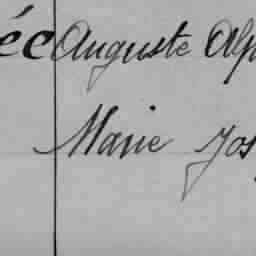 ée Auguste Alp
Marie Jos